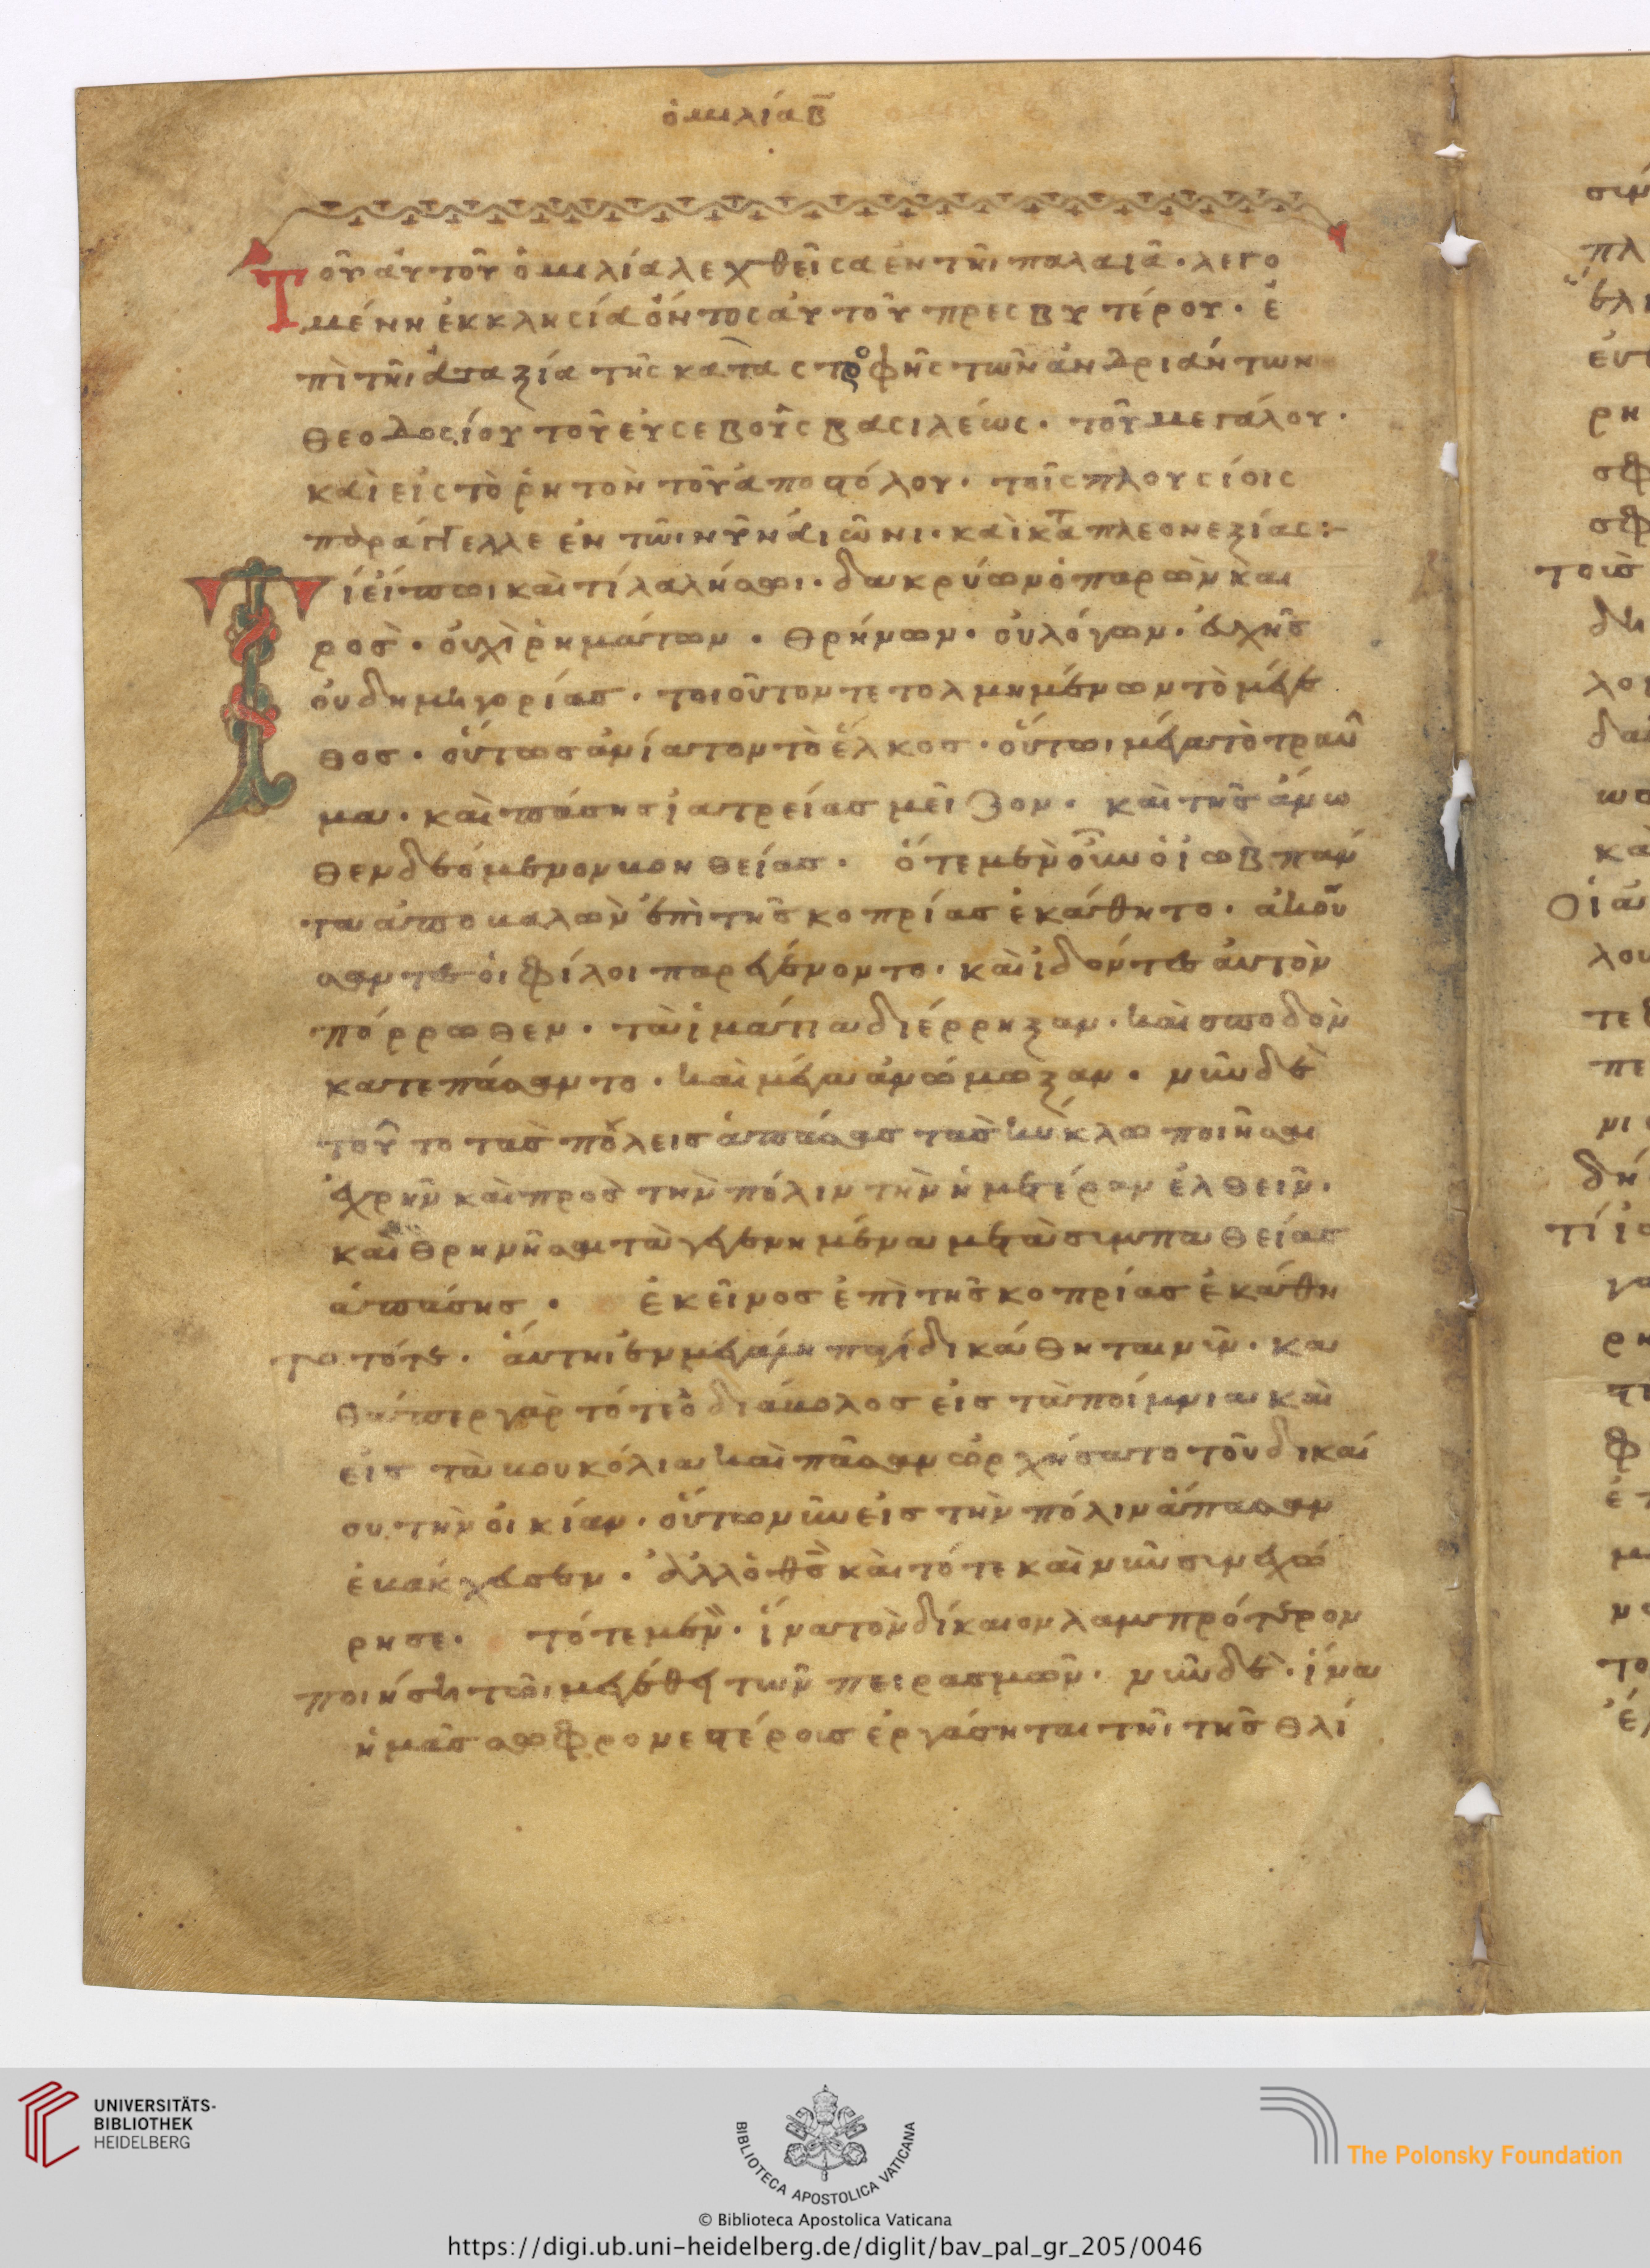 ὁμιλία β̅
Τοῦ αὐτοῦ ὁμιλία λεχθεῖσα ἐν τῆι παλαιᾶ· λεγο
μένη ἐκκλησία ὄντος αὐτοῦ πρεσβυτέρου· ἐ
πὶ τῆι ἀταξία τῆς καταστροφῆς τῶν ἀνδριάντων
Θεοδοσίου τοῦ εὐσεβοῦς βασιλέως· τοῦ μεγάλου·
καὶ εἰς τὸ ῥητὸν τοῦ ἀποστόλου· τοῖς πλουσίοις
παράγγελλε ἐν τῶι νῦν αἰῶνι· καὶ κατ πλεονεξίας:–
Τί εἴπωι καὶ τί λαλήσωι· δακρύων ὁ παρὼν και
ρὸς· οὐχὶ ῥημάτων· θρήνων· οὐ λόγων· εὐχῆς
οὐ δημηγορίας· τοιοῦτον τετολμημένων τὸ μέγε
θος· οὕτως ἀνίατον τὸ ἕλκος· οὕτωι μέγα τὸ τραῦ
μα· καὶ πάσης ἰατρείας μεῖζον· καὶ τῆς ἄνω
θεν δεόμενον βοηθείας· ὅτε μὲν οὖν ὁ ἰὼβ πάν
τα ἀποβαλὼν ἐπὶ τῆς κοπρίας ἐκάθητο· ἀκού
σαντες οἱ φίλοι παρεγένοντο· καὶ ἰδόντες αὐτὸν
πόρρωθεν· τὰ ἱμάτια διέρρηξαν· καὶ σποδὸν
κατεπάσαντο· καὶ μέγα ἀνώμωξαν· νῦν δὲ
τοῦτο τὰς πόλεις ἁπάσας τὰς κύκλω ποιῆσαι
ἐχρῆν καὶ πρὸς τὴν πόλιν τὴν ἡμετέραν ἐλθεῖν·
καὶ θρηνῆσαι τὰ γεγενημένα μετὰ συμπαθείας
ἁπάσης· Ἐκεῖνος ἐπὶ τῆς κοπρίας ἐκάθη
το τότε· αὕτη ἐν μεγάλη παγίδι κάθηται νῦν· κα
θάπερ γὰρ τότε ὁ διάβολος εἰς τὰ ποίμνια καὶ
εἰς τὰ βουκόλια καὶ πᾶσαν ὠρχήσατο τοῦ δικαί
ου τὴν οἰκίαν· οὕτω νῦν εἰς τὴν πόλιν ἅπασαν
ἐβάκχευσεν· ἀλλ' ὁ θς καὶ τότε καὶ νῦν συνεχώ
ρησε· τότε μὲν· ἵνα τὸν δίκαιον λαμπρότερον
ποιήση τῶι μεγέθει τῶν πειρασμῶν· νῦν δὲ· ἵνα
ἡμᾶς σωφρονεστέρους ἐργάσηται τῆι τῆς θλί
UNIVERSITÄTS-
BIBLIOTHEK
HEIDELBERG
BIBLIOTECA APOSTOLICA VATICANA
The Polonsky Foundation
© Biblioteca Apostolica Vaticana
https://digi.ub.uni-heidelberg.de/diglit/bav_pal_gr_205/0046